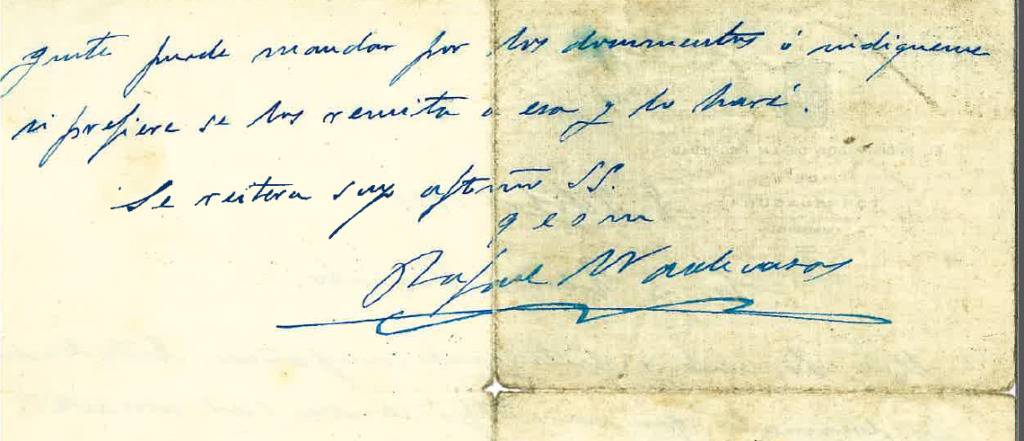 guste puede mandar por los documentos ó indiqueme
si prefiere se los remita a esa y lo haré.
Se reitera suyo aftmo SS.
q e s m
Rafael